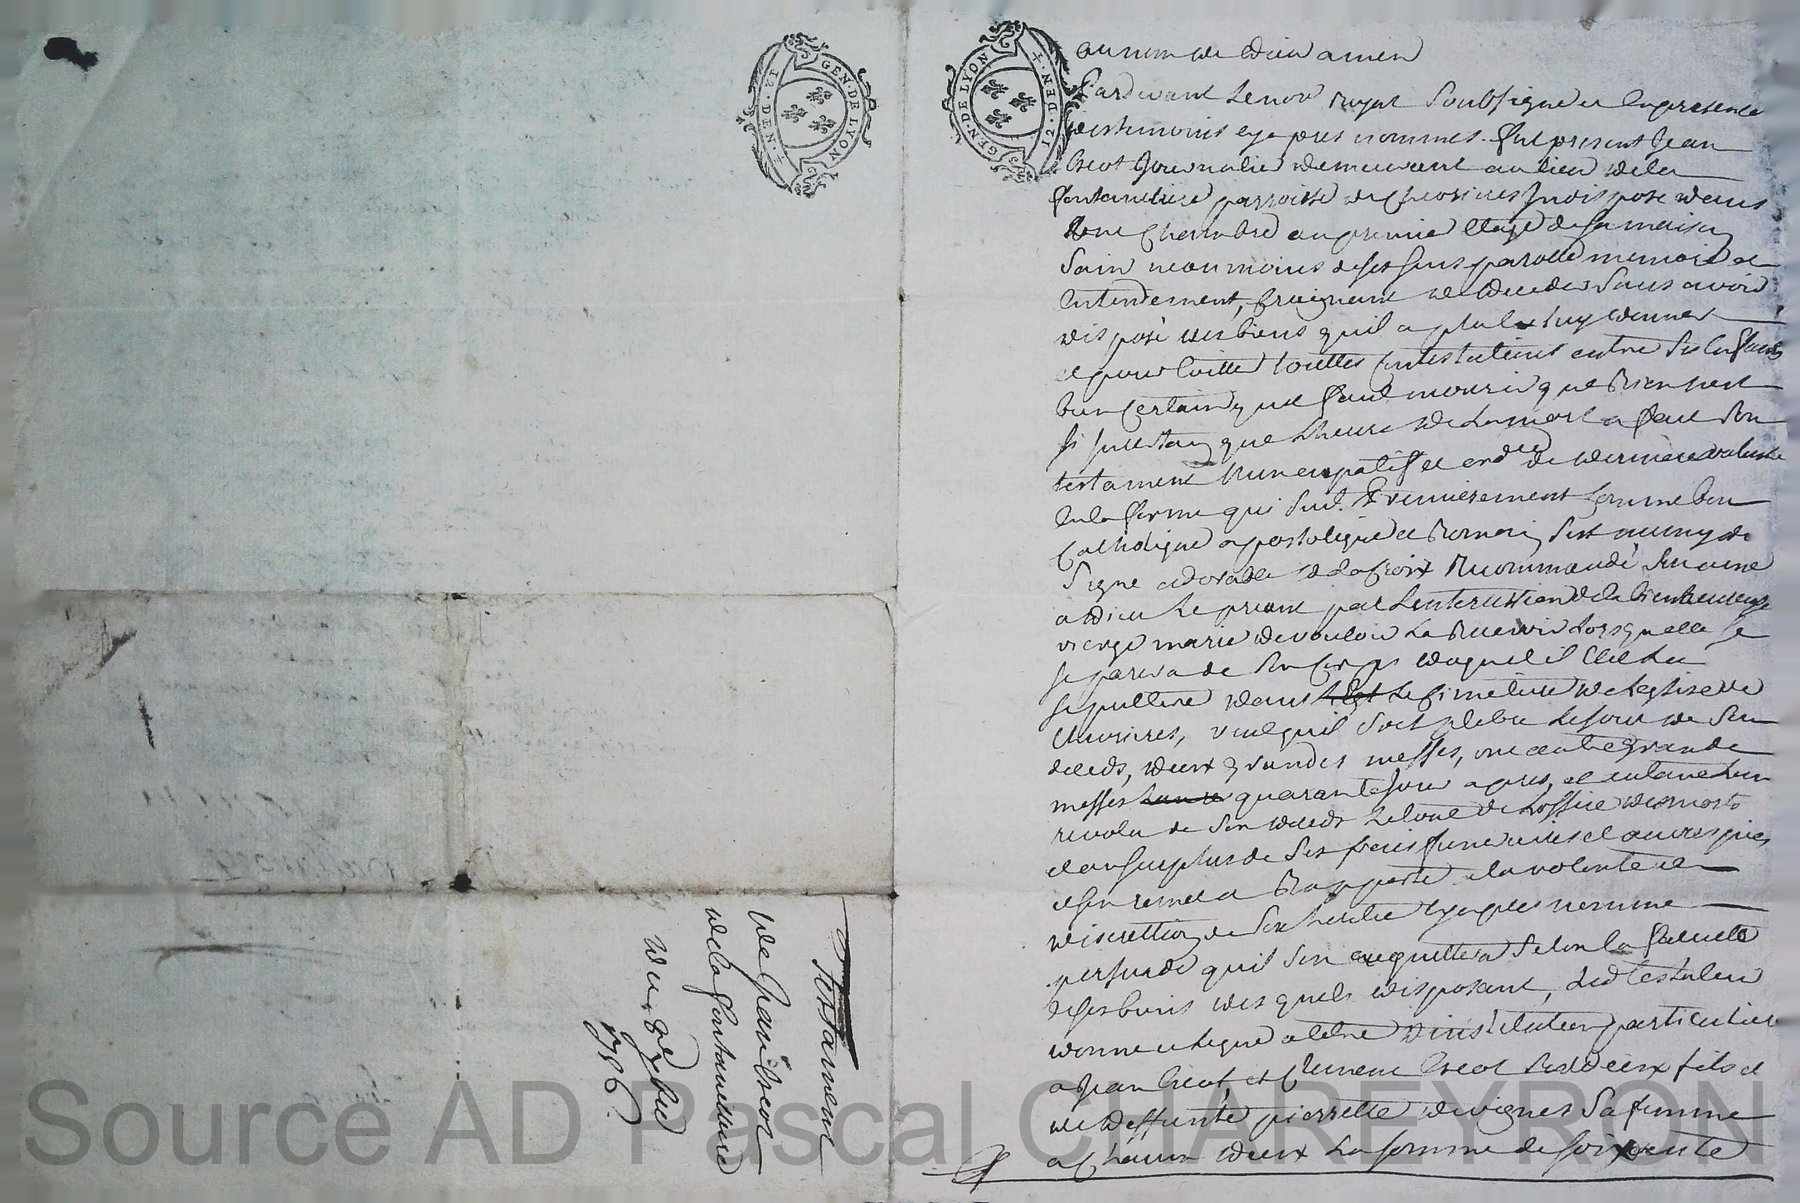 GEN·DE·LYON
12·DEN·
GEN·DE·LYON
12·DEN·
au nom de dieu amen
Pardevant Le no.re Royal Soubsigné et en presence
des temoins cy apres nommes fut present Jean
Creot Journalier demeurant au lieu de la
parroisse de Indisposé dans
une chambre au premier étage de sa maison
Sain neanmoins de ses sens parolle memoire et
entendement, craignant de deceder sans avoir
disposé des biens quil a plu a luy donner
et pour éviter touttes contestations entre ses enfants
bien certain quil faut mourir que Rien nest
si incertain que Lheure de La mort a fait Son
testament nuncupatif et ordre de derniere volunté
en la forme qui suit. Premierement comme bon
Catholique apostolique et Romain sest muny du
Signe adorable de La Croix Recommandé Son ame
a dieu Le priant par Lintercession de la bienheureuse
vierge marie de vouloir La Recevoir Lorsquelle se
separera de Son corps duquel il élit La
sepulture dans le cimetiere de Leglise de
veut quil soit celebré Le jour de Son
deceds, deux grandes messes, une autre grande
messe quarante jour apres, et autant Lan
revolu de Son deceds Le tout de Loffice des morts
et au surplus de Ses frais funeraires et œuvres pies
il sen remet et Rapporte a la volonté et
discrettion de Son heritier cy apres nommé
persuadé quil sen acquittera selon la faculté
de ses biens desquels disposant, Led testateur
donne et legue a titre dinstitution particuliere
a Jean Creot, et Clement Creot Ses deux fils et
de deffunte pierrette devignes Sa femme
a chacun deux La somme de soixante
Testament
de Jean Creot
de la
du 9bre
1786
Source AD Pascal CHAREYRON